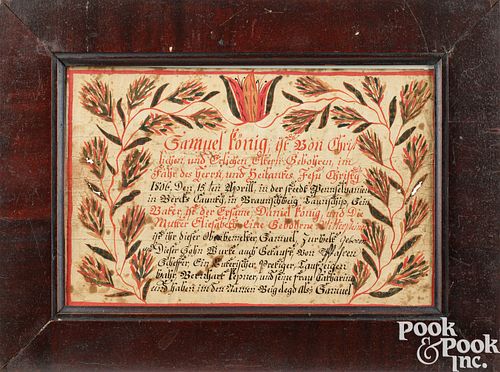 Samuel König, ist Von Chri-
licher, und Erlichen Eltern Gebohren, im
Jahr des Herrn, und Heilandes, Jesu Christy
1806, Den 15 ten Aprill, in der stedt Pennselvanien
in Bercks Caunty, in Braunschweig Taunschip, Sein
Vater ist der Ersame, Daniel König, und Die
Mutter Elisabeth, Eine Gebohrne
ist ihr dieser Samuel, Zur Welt Geboren
Dieser Sohn Wurte auch Getauft, Von Pfarern
Scheffer, Ein Luterischer, Prediger, Tauf Zeigen
Wahr Bernhart Kepner und seine Frau Catharina
und haben im den Namen Beigelegd Als Samuel
POOK
& POOK
INC.